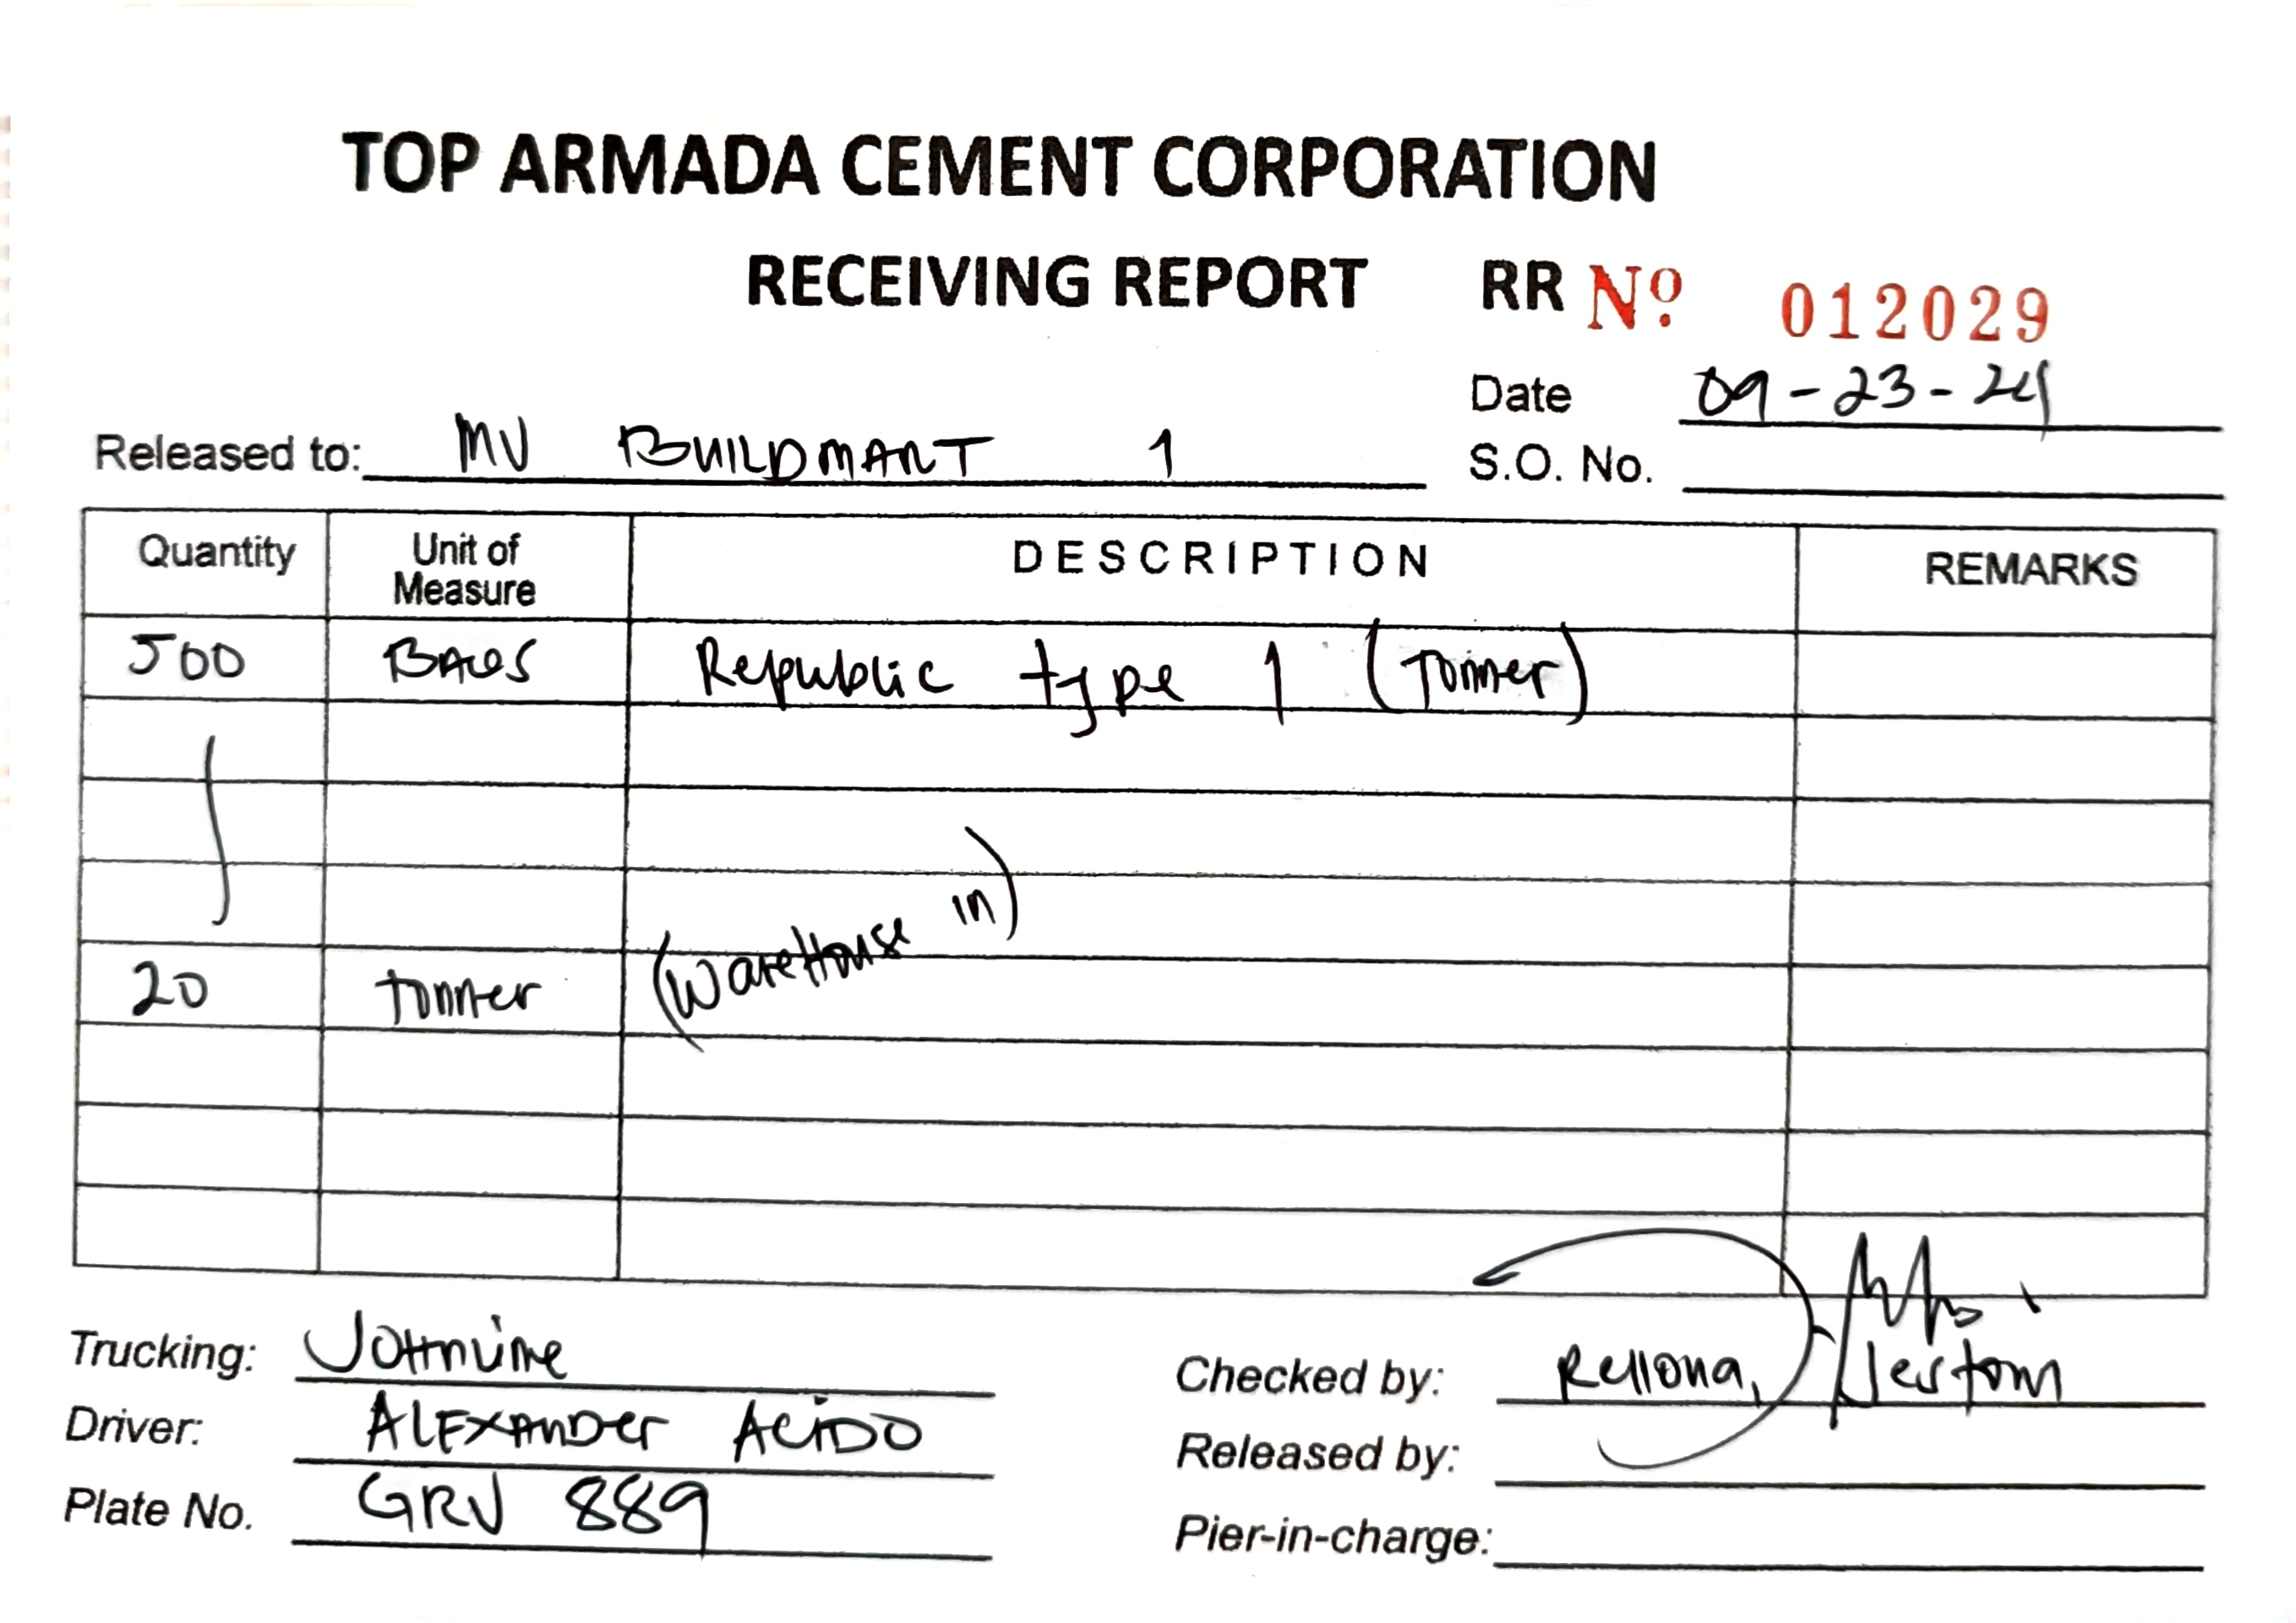 TOP ARMADA CEMENT CORPORATION
RECEIVING REPORT RR Nº 012029
Date 09-23-24
Released to: MV BUILDMART 1
S.O. No.
Quantity Unit of Measure DESCRIPTION REMARKS
500 BAGS Republic type 1 (Tonner)
(WareHouse in)
20 tonner
Trucking: JOHNVINE
Checked by: Rellona, Jestom
Driver: ALEXANDER ACIDO
Released by:
Plate No. GRV 889
Pier-in-charge: